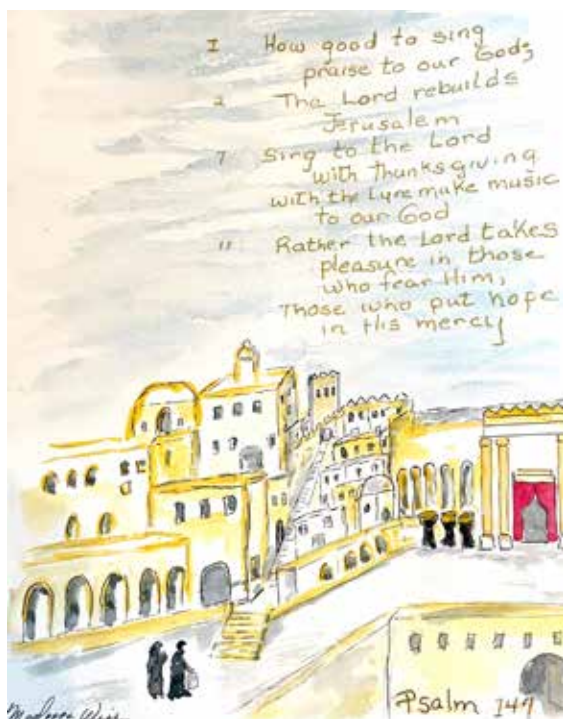 1 How good to sing
praise to our God;
2 The Lord rebuilds
Jerusalem
7 Sing to the Lord
with thanksgiving
with the Lyre make music
to our God
11 Rather the Lord takes
pleasure in those
who fear Him,
Those who put hope
in His mercy
Psalm 147